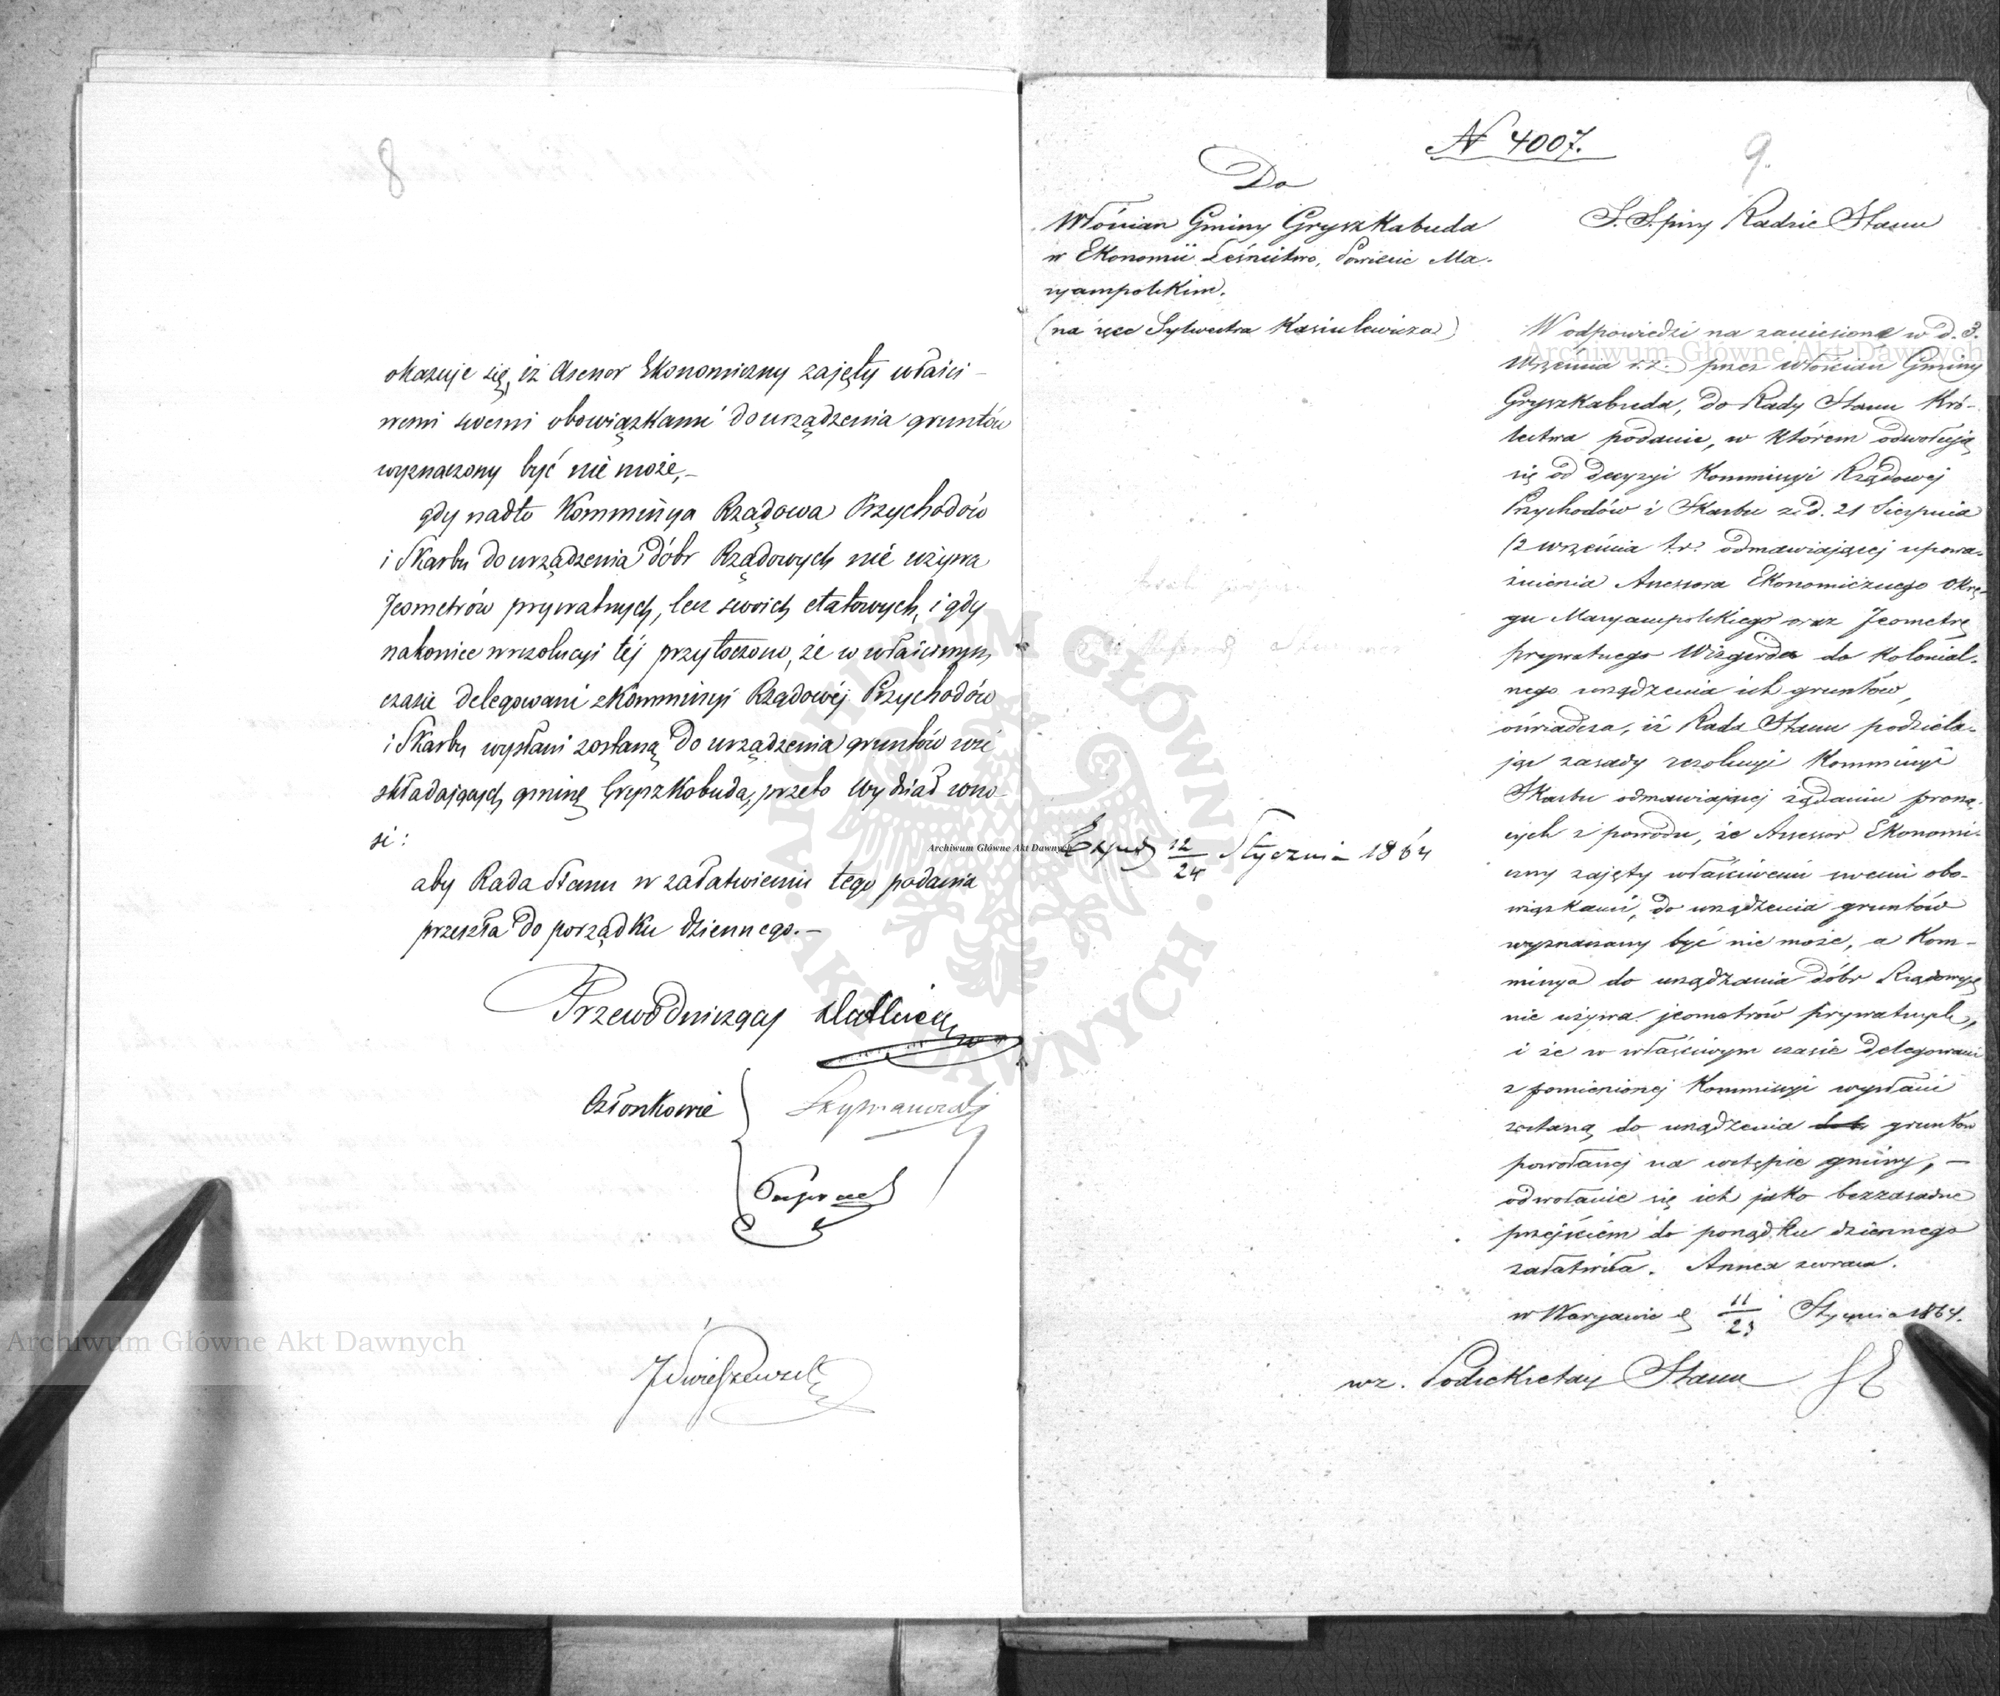 8
okazuje się, iż Asessor Ekonomiczny zajęty właści-
wemi swemi obowiązkami do urządzenia gruntów
wyznaczony być nie może,-
gdy nadto Kommissya Rządowa Przychodów
i Skarbu do urządzenia dóbr Rządowych nie używa
Jeometrów prywatnych, lecz swoich etatowych, i gdy
nakoniec w rezolucyi tej przytoczono, że w właściwym
czasie delegowani z Kommissyi Rządowej Przychodów
i Skarbu wysłani zostaną do urządzenia gruntów wsi
składających gminę Gryszkobuda, przeto Wydział wno-
si:
aby Rada Stanu w załatwieniu tego podania
przeszła do porządku dziennego.-
Przewodniczący
Członkowie
Szymanowski
N 4007.
9.
Do
Włościan Gminy Gryszkabuda
w Ekonomii Leśnictwo, Powiecie Ma-
ryampolskim.
(na ręce Sylwestra Kasiulewicza)
Exped 12/24 Stycznia 1864
Radzie Stanu
W odpowiedzi na zaniesione w d. 3.
Września r.z. przez Włościan Gminy
Gryszkabuda, do Rady Stanu Kró-
lestwa podanie, w którem odwołują
się od decyzyi Kommissyi Rządowej
Przychodów i Skarbu z d. 21 Sierpnia
/2 września t.r. odmawiającej upowa-
żnienia Assessora Ekonomicznego Okrę-
gu Maryampolskiego oraz Jeometrę
prywatnego Wizgirda do kolonial-
nego urządzenia ich gruntów,
oświadcza, iż Rada Stanu podziela-
jąc zasady rezolucyi Kommissyi
Skarbu odmawiającej żądaniu proszą-
cych z powodu, że Assessor Ekonomi-
czny zajęty właściwemi swemi obo-
wiązkami, do urządzenia gruntów
wyznaczany być nie może, a Kom-
missya do urządzania dóbr Rządowych
nie używa jeometrów prywatnych,
i że w właściwym czasie delegowani
z pomienionej Kommissyi wysłani
zostaną do urządzenia gruntów
powołanej na wstępie gminy,-
odwołanie się ich jako bezzasadne
przejściem do porządku dziennego
załatwiła. Annex zwraca.
w Warszawie d 11/23 Stycznia 1864.
wz. Podsekretarz Stanu
Archiwum Główne Akt Dawnych
Archiwum Główne Akt Dawnych
Archiwum Główne Akt Dawnych
ARCHIWUM GŁÓWNE AKT DAWNYCH